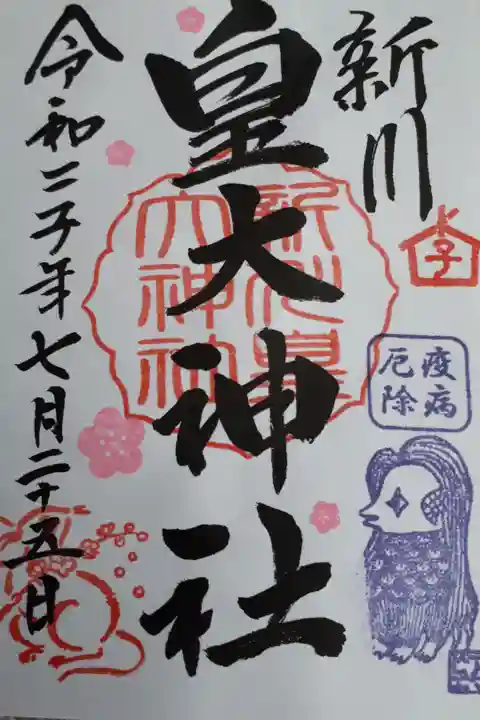 新川
皇大神社
令和二子年七月二十五日
子
疫病
厄除
新川皇
大神社